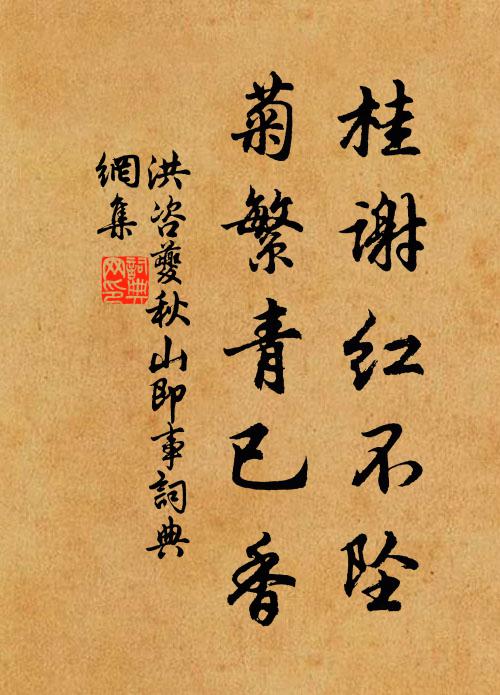 桂谢红不坠
菊繁青已香
洪咨夔秋山即事詞典
網集
詞典
网印